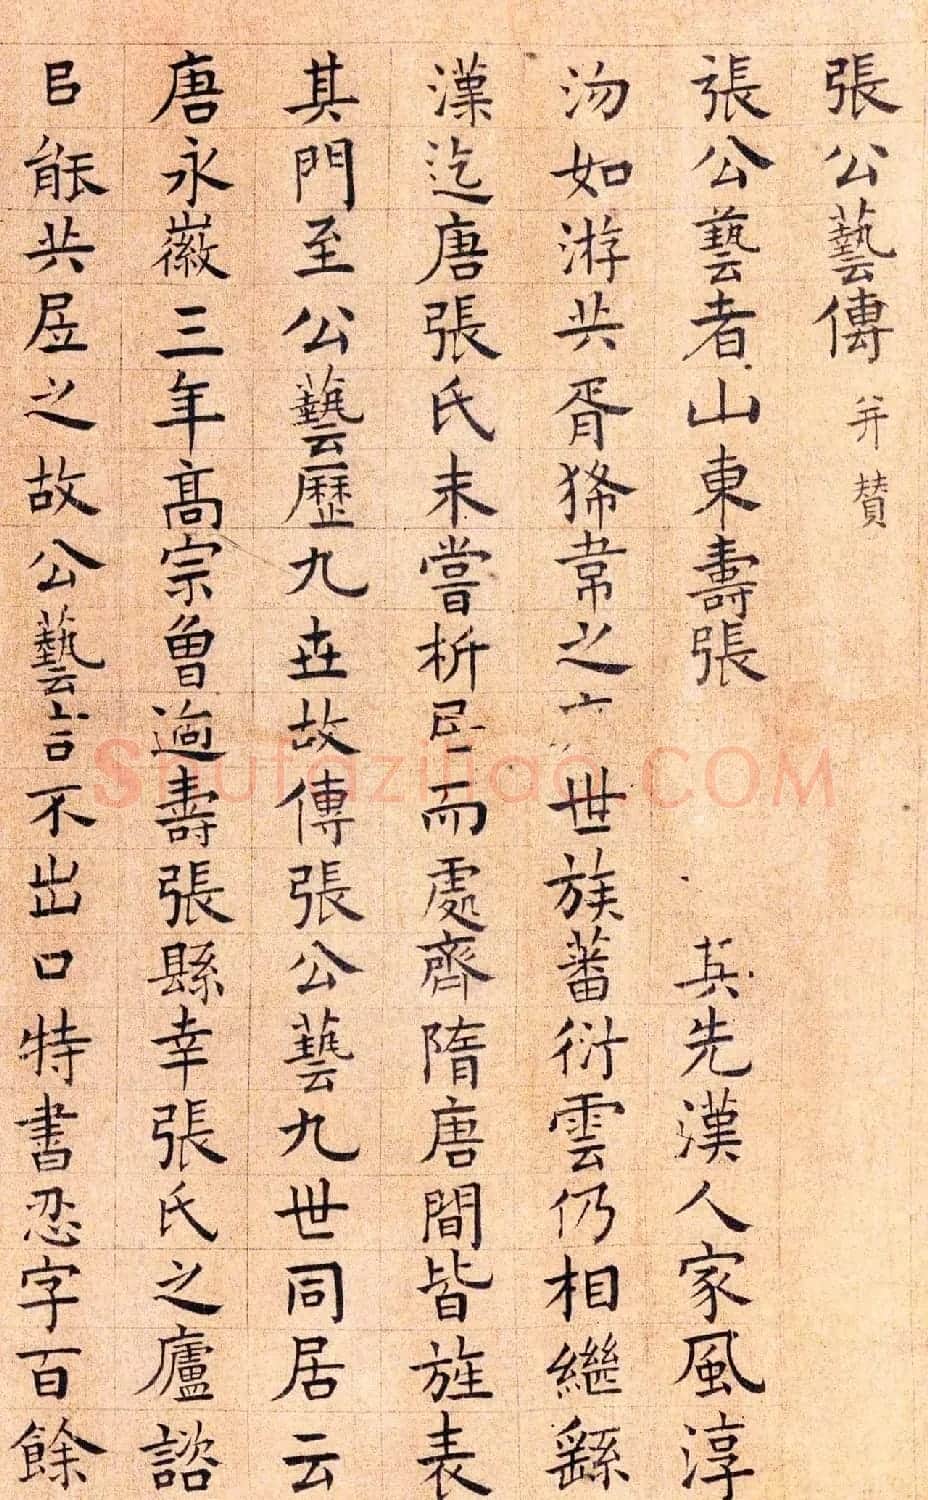 張公藝傳 并贊
張公藝者山東壽張其先漢人家風淳
沕如游共胥豨韋之世族蕃衍雲仍相繼繇
漢迄唐張氏未嘗析而處齊隋唐間皆旌表
其門至公藝歷九世故傳張公藝九世同居云
唐永徽三年髙宗魯過壽張縣幸張氏之廬諮
㠯能共居之故公藝言不出口特書忍字百餘
Shufaziliao.COM